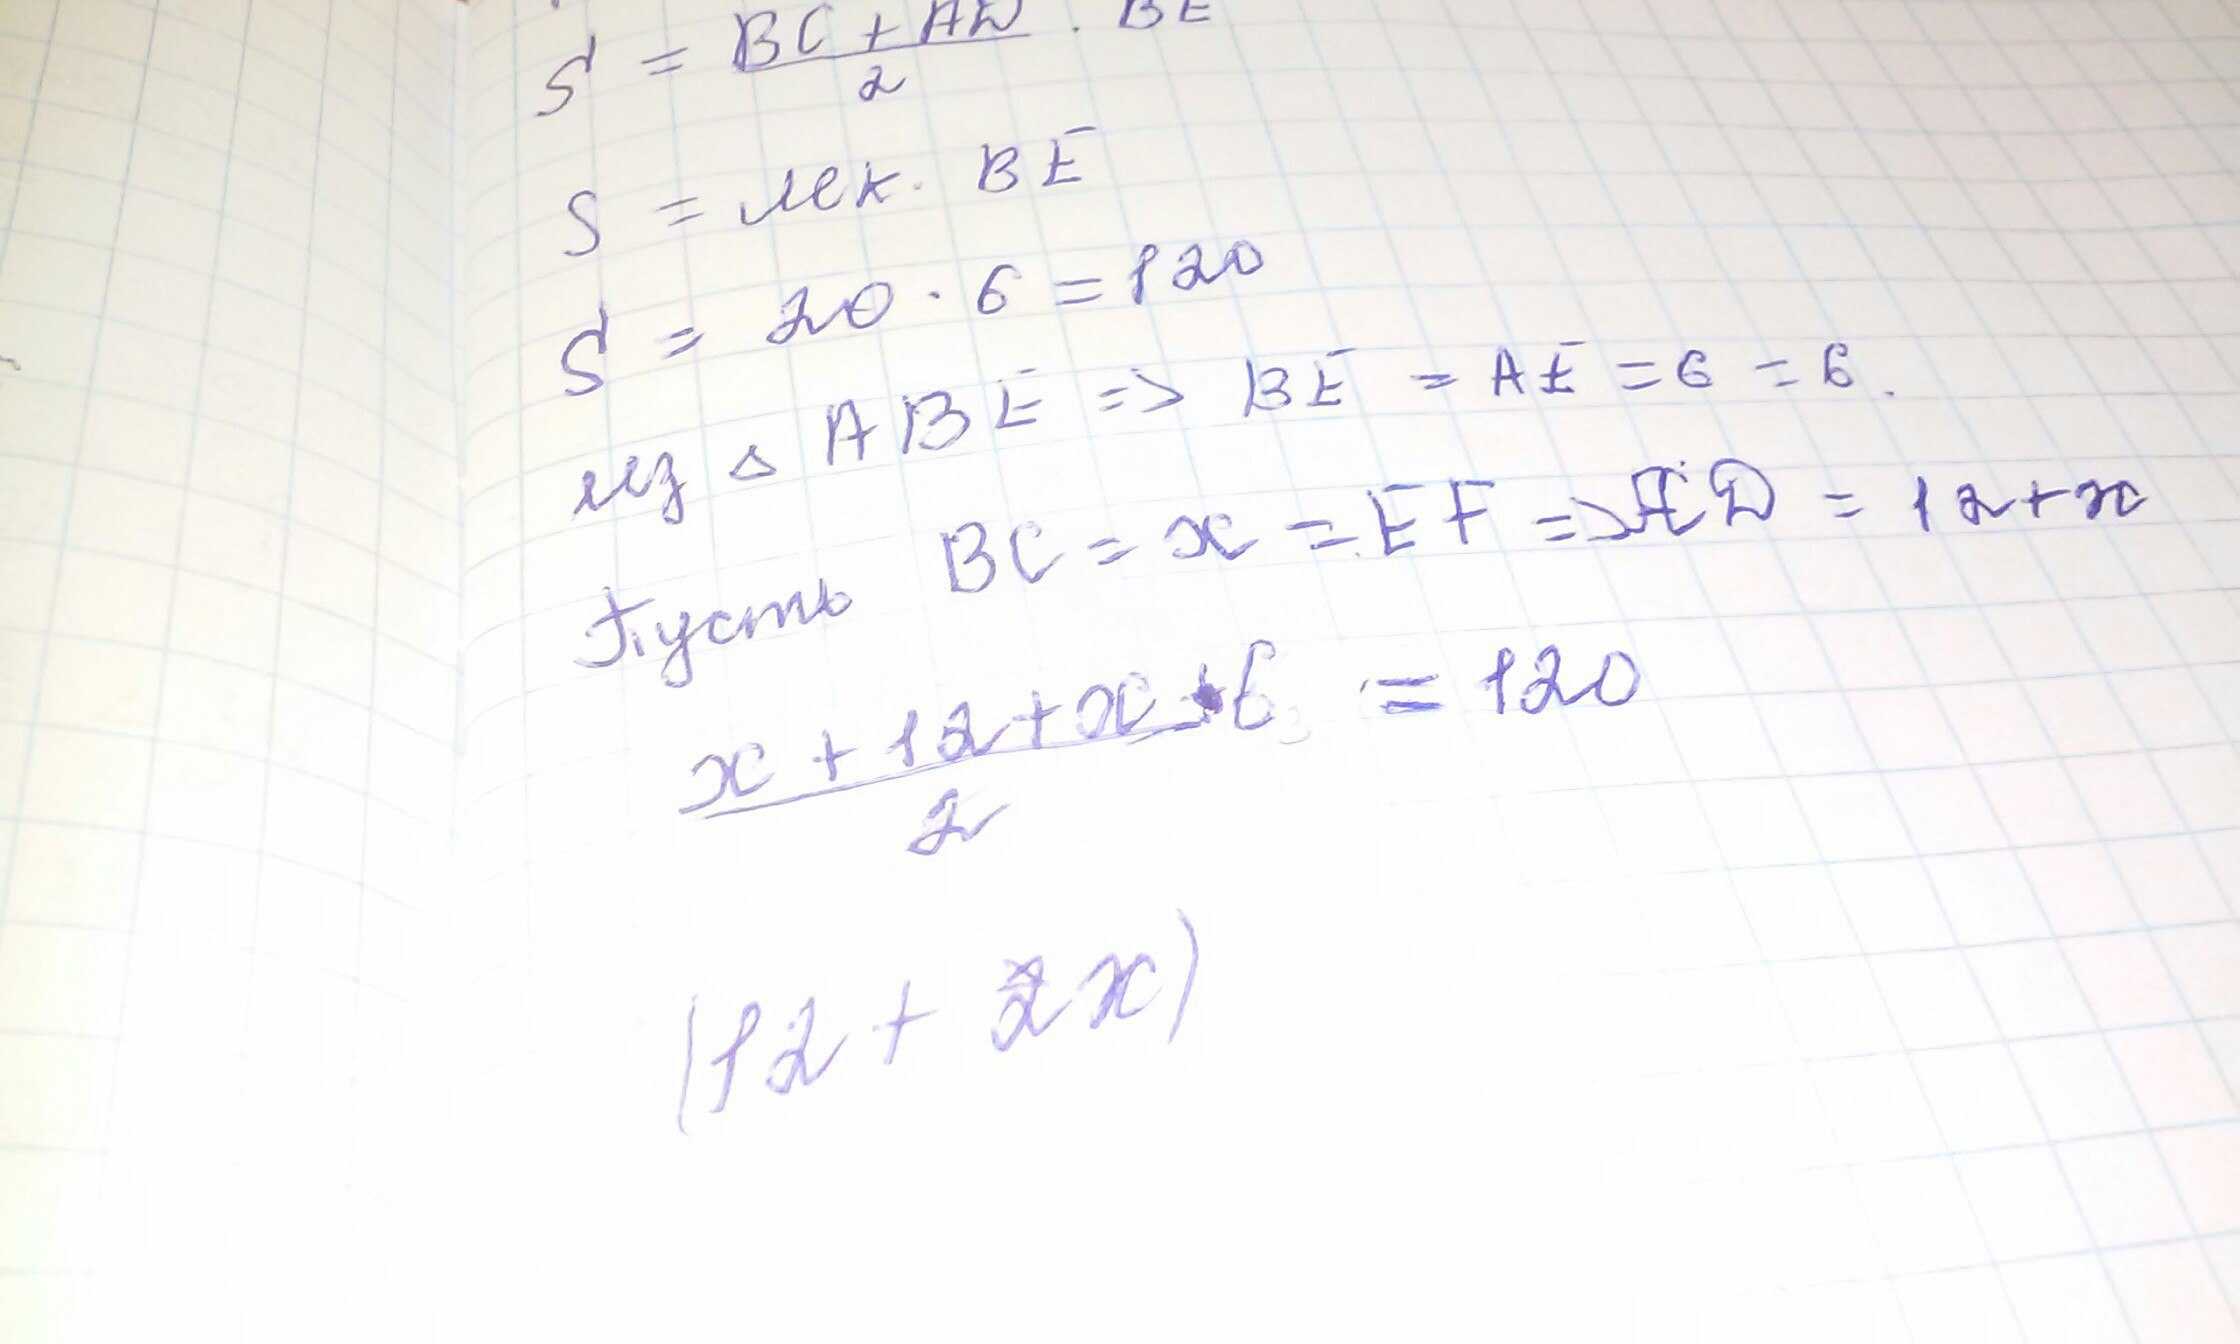 S = BC + AD / 2 · BE
S = мк · BE
S = 20 · 6 = 120
из △ ABE => BE = AE = 6 = 6.
Пусть BC = x = EF => AD = 12 + x
x + 12 + x / 2 · 6 = 120
(12 + 2x)